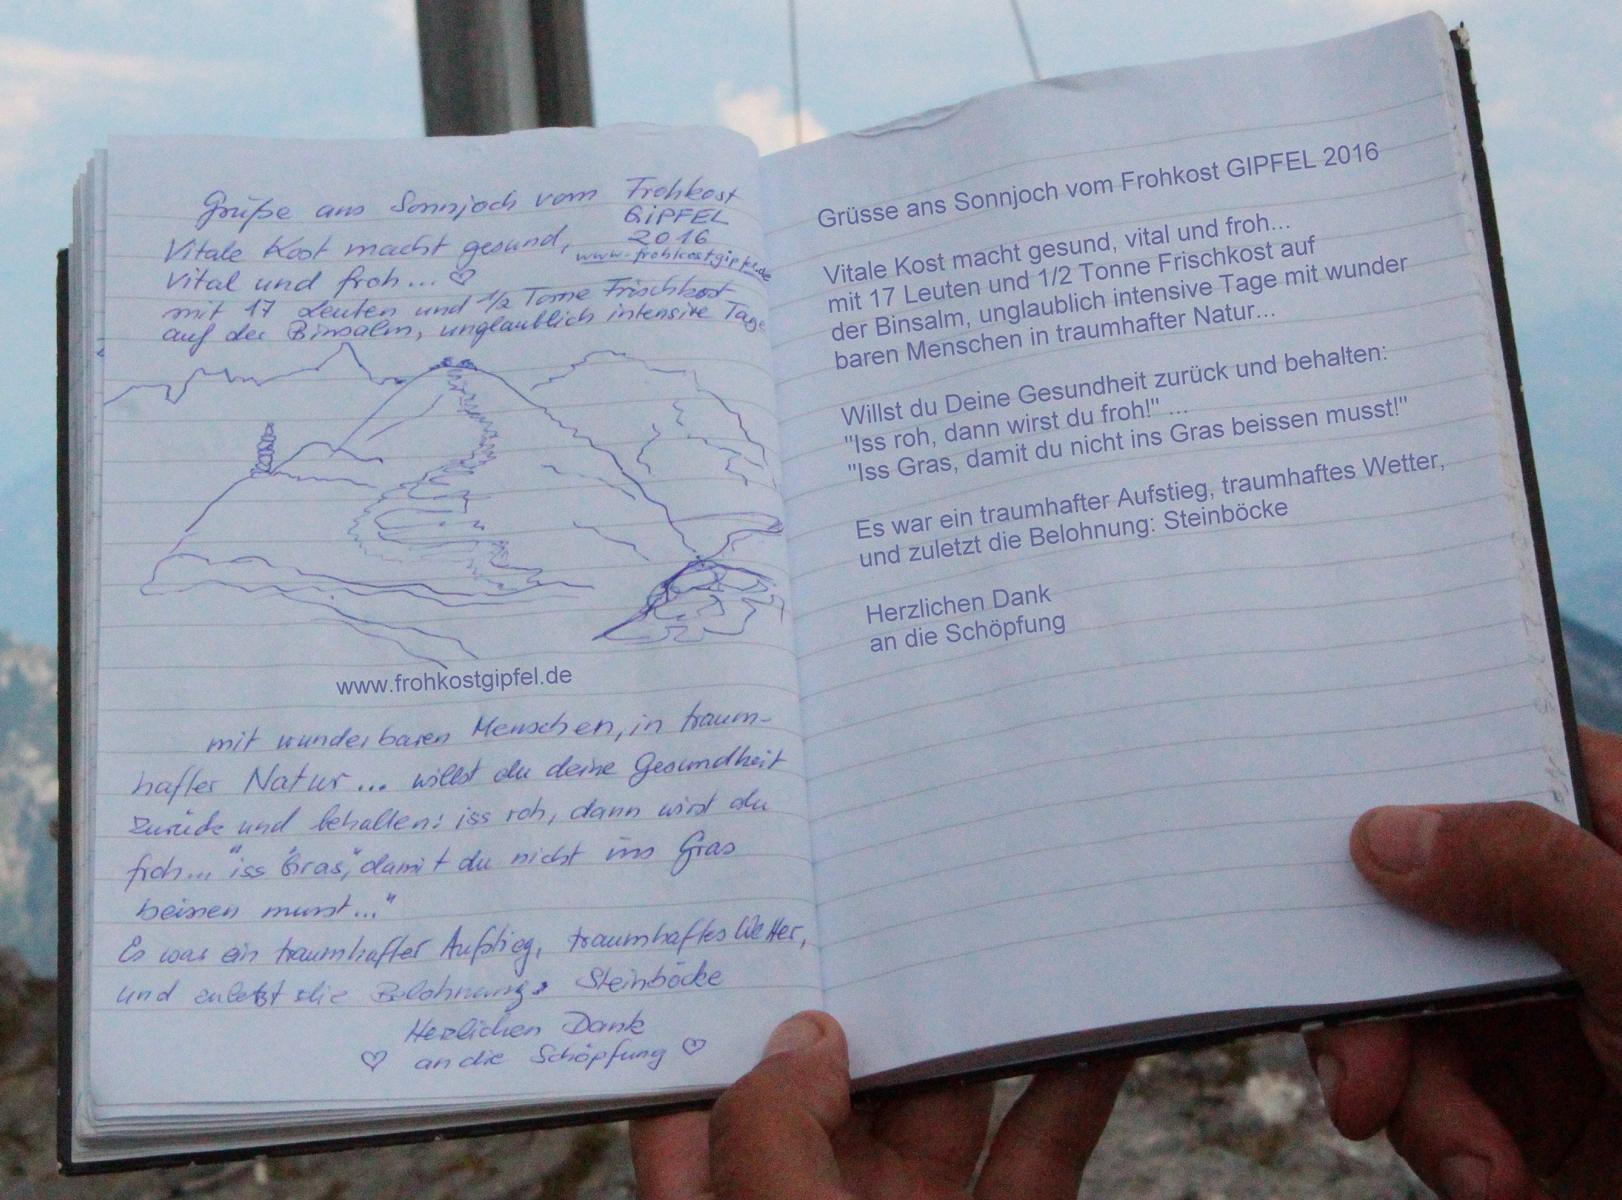 Grüße ans Sonnjoch vom Frohkost
GiPFEL
2016
Vitale Kost macht gesund,
www.frohkostgipfel.de
Vital und froh... ♡
mit 17 Leuten und 1/2 Tonne Frischkost
auf der Binsalm, unglaublich intensive Tage
www.frohkostgipfel.de
mit wunderbaren Menschen, in traum-
hafter Natur... willst du deine Gesundheit
zurück und behalten: iss roh, dann wirst du
froh... "iss "Gras," damit du nicht ins Gras
beissen musst..."
Es war ein traumhafter Aufstieg, traumhaftes Wetter,
und zuletzt die Belohnung: Steinböcke
Herzlichen Dank
♡ an die Schöpfung ♡
Grüsse ans Sonnjoch vom Frohkost GIPFEL 2016
Vitale Kost macht gesund, vital und froh...
mit 17 Leuten und 1/2 Tonne Frischkost auf
der Binsalm, unglaublich intensive Tage mit wunder
baren Menschen in traumhafter Natur...
Willst du Deine Gesundheit zurück und behalten:
"Iss roh, dann wirst du froh!" ...
"Iss Gras, damit du nicht ins Gras beissen musst!"
Es war ein traumhafter Aufstieg, traumhaftes Wetter,
und zuletzt die Belohnung: Steinböcke
Herzlichen Dank
an die Schöpfung